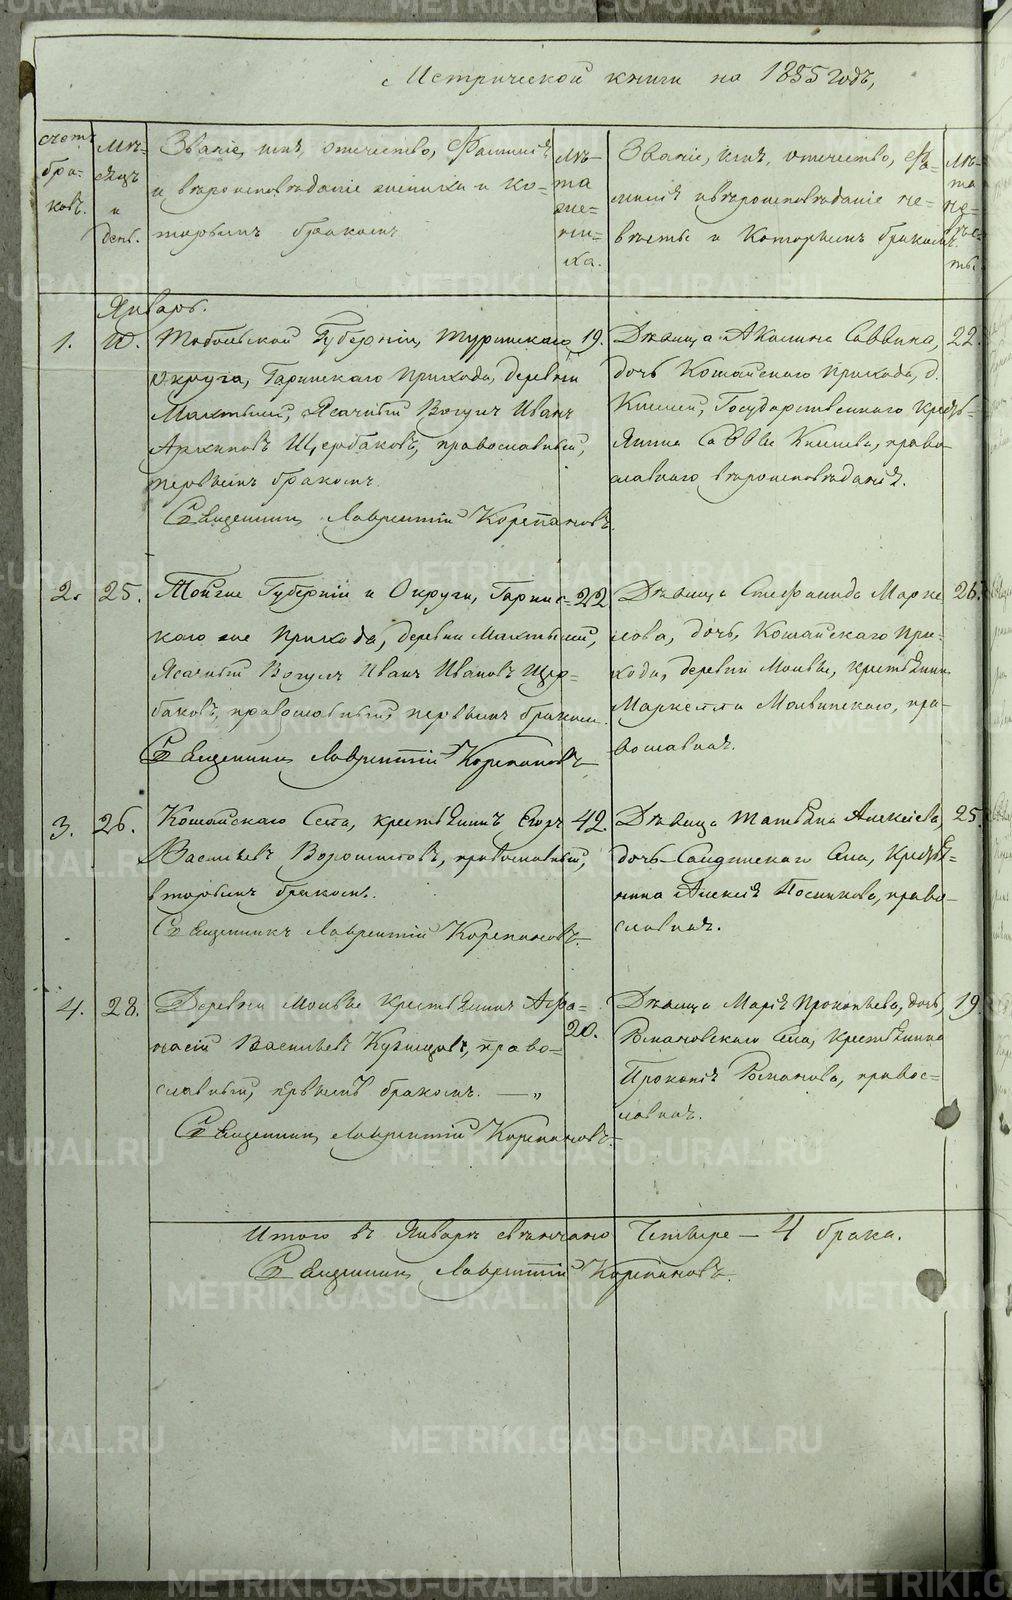 Метрической книги на 1855 годъ,
счетъ браковъ.
Мѣсяцъ и день.
Званіе, имя, отечество, Фамилія
и вѣроисповѣданіе жениха и ко-
торымъ бракомъ
Лѣта жениха.
Званіе, имя, отечество, Фа-
милія и вѣроисповѣданіе не-
вѣсты и Которымъ бракомъ
Лѣта невѣсты.
Январь.
1. 10. Тобольской Губерніи, Туринскаго 19.
округа, Гаринскаго Прихода, деревни
Махтыли, Ясачный Вогулъ Иванъ
Архиповъ Щербаковъ, православный,
первымъ бракомъ.
Священникъ Лаврентій Корепановъ.
Дѣвица Акилина Саввина, 22.
дочь Кошайскаго Прихода, д.
Государственнаго Кресть-
янина Саввы право-
славнаго вѣроисповѣданія.
2. 25. Тойже Губерніи и Округи, Гаринс- 22
каго же Прихода, деревни Махтылей,
Ясачный Вогулъ Иванъ Ивановъ Щер-
баковъ, православный, первымъ бракомъ.
Священникъ Лаврентій Корепановъ
Дѣвица Стефанида Марке 26.
лова, дочь, Кошайскаго При-
хода, деревни Молвы, крестьянина
Маркелла Молвинскаго, пра-
вославная.
3. 26. Кошайскаго Села, крестьянинъ Егоръ 42.
Васильевъ Ворошиловъ, православный,
вторымъ бракомъ.
Священникъ Лаврентій Корепановъ.
Дѣвица Татьяна Алексѣева, 25.
дочь Села, Крестья-
нина Алексія Посникова, право-
славная.
4. 28. Деревни Молвы Крестьянинъ Афа-
насій Васильевъ Кузнецовъ, право- 20.
славный, первымъ бракомъ. — „
Священникъ Лаврентій Корепановъ.
Дѣвица Марія Прокопьева, дочь, 19.
Романовскаго Села, Крестьянина
Прокопія Романова, правос-
лавная.
Итого въ Январѣ свѣнчано Четыре — 4 брака.
Священникъ Лаврентій Корепановъ.
METRIKI.GASO-URAL.RU